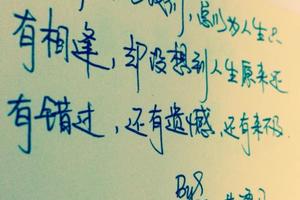 别,总以为人生只
有相逢,却没想到人生原来还
有错过,还有遗憾,还有来不及
By